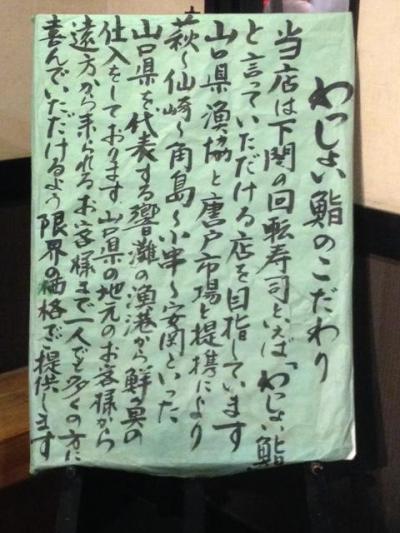 わっしょい鮨のこだわり
当店は下関の回転寿司といえば「わっしょい鮨」
と言っていただける店を目指しています
山口県漁協と唐戸市場と提携により
萩〜仙崎〜角島〜小串〜安岡といった
山口県を代表する響灘の漁港から鮮魚の
仕入をしております 山口県の地元のお客様から
遠方から来られるお客様まで一人でも多くの方に
喜んでいただけるよう限界の価格でご提供します